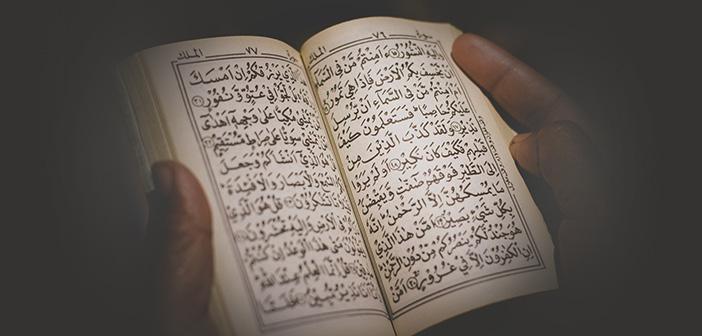 سورة ٧٦ الملك
إِلَيْهِ النُّشُورُ ءَأَمِنْتُمْ مَنْ فِي السَّمَاءِ
أَنْ يَخْسِفَ بِكُمُ الْأَرْضَ فَإِذَا هِيَ تَمُورُ
أَمْ أَمِنْتُمْ مَنْ فِي السَّمَاءِ أَنْ يُرْسِلَ
عَلَيْكُمْ حَاصِبًا فَسَتَعْلَمُونَ كَيْفَ
نَذِيرِ ۝١٧ وَلَقَدْ كَذَّبَ الَّذِينَ مِنْ
قَبْلِهِمْ فَكَيْفَ كَانَ نَكِيرِ ۝١٨ أَوَلَمْ يَرَوْا
إِلَى الطَّيْرِ فَوْقَهُمْ صٰفّٰتٍ وَيَقْبِضْنَ
مَا يُمْسِكُهُنَّ إِلَّا الرَّحْمٰنُ إِنَّهُ
بِكُلِّ شَيْءٍ بَصِيرٌ ۝١٩ أَمَّنْ هٰذَا الَّذِي
هُوَ جُنْدٌ لَكُمْ يَنْصُرُكُمْ مِنْ دُونِ الرَّحْمٰنِ
إِنِ الْكٰفِرُونَ إِلَّا فِي غُرُورٍ ۝٢٠ أَمَّنْ
سورة ٧٧ الملك
الَّذِي يَرْزُقُكُمْ إِنْ أَمْسَكَ
بَلْ لَجُّوا فِي عُتُوٍّ وَنُفُورٍ ۝٢١
يَمْشِي مُكِبًّا عَلَى وَجْهِهِ أَهْدَى
يَمْشِي سَوِيًّا عَلَى صِرَاطٍ مُسْتَقِيمٍ
الَّذِي أَنْشَأَكُمْ وَجَعَلَ
السَّمْعَ وَالْأَبْصَارَ وَالْأَفْئِدَةَ
مَا تَشْكُرُونَ ۝٢٣ قُلْ هُوَ الَّذِي
فِي الْأَرْضِ وَإِلَيْهِ تُحْشَرُونَ ۝٢٤
مَتَى هٰذَا الْوَعْدُ إِنْ كُنْتُمْ
قُلْ إِنَّمَا الْعِلْمُ عِنْدَ اللّٰهِ
أَنَا نَذِيرٌ مُبِينٌ ۝٢٦ فَلَمَّا